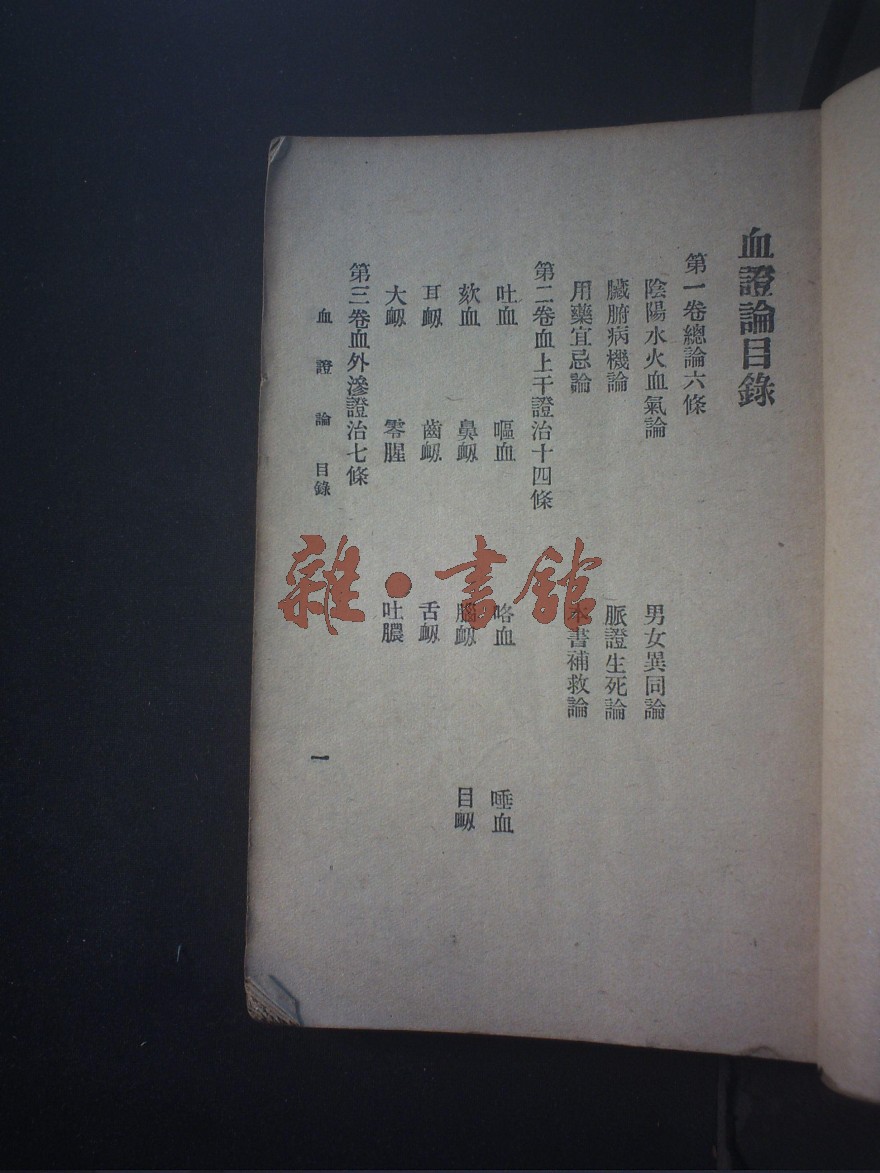 血證論目錄
第一卷總論六條
陰陽水火血氣論　男女異同論
臟腑病機論　脈證生死論
用藥宜忌論　本書補救論
第二卷血上干證治十四條
吐血　嘔血　咯血　唾血
欬血　鼻衂　腦衂　目衂
耳衂　齒衂　舌衂
大衂　零腥　吐膿
第三卷血外滲證治七條
血證論　目錄　一
雜·書館